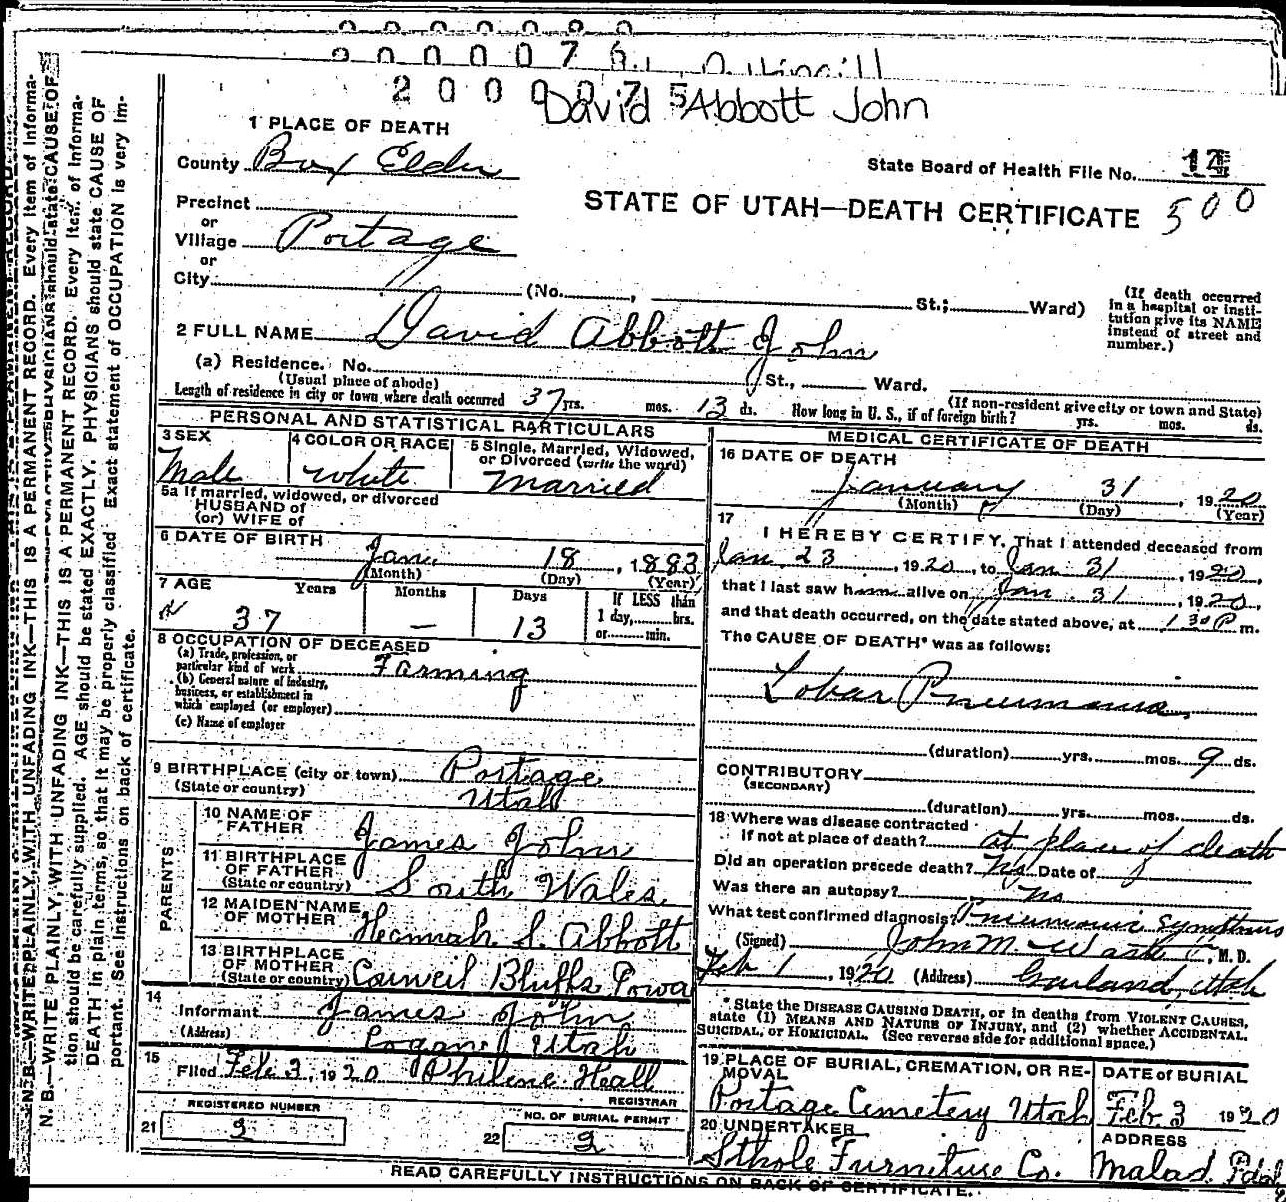 2000076
2000075
David Abbott John
1 PLACE OF DEATH
County Box Elder
State Board of Health File No. 12
STATE OF UTAH—DEATH CERTIFICATE 500
Precinct
or
Village Portage
or
City (No. , St.; Ward)
(If death occurred in a hospital or institution give its NAME instead of street and number.)
2 FULL NAME David Abbott John
(a) Residence. No. St., Ward.
(Usual place of abode) (If non-resident give city or town and State)
Length of residence in city or town where death occurred 37 yrs. mos. 13 ds. How long in U. S., if of foreign birth? yrs. mos. ds.
PERSONAL AND STATISTICAL PARTICULARS
3 SEX Male
4 COLOR OR RACE White
5 Single, Married, Widowed, or Divorced (write the word) Married
5a If married, widowed, or divorced
HUSBAND of
(or) WIFE of
6 DATE OF BIRTH
Jan. 18, 1883
(Month) (Day) (Year)
7 AGE Years Months Days If LESS than
37 — 13 1 day, hrs.
or min.
8 OCCUPATION OF DECEASED
(a) Trade, profession, or
particular kind of work Farming
(b) General nature of industry,
business, or establishment in
which employed (or employer)
(c) Name of employer
9 BIRTHPLACE (city or town) Portage
(State or country) Utah
PARENTS
10 NAME OF FATHER James John
11 BIRTHPLACE OF FATHER (State or country) South Wales
12 MAIDEN NAME OF MOTHER Hannah S. Abbott
13 BIRTHPLACE OF MOTHER (State or country) Council Bluffs Iowa
14
Informant James John
(Address) Logan Utah
15
Filed Feb 3, 1920 Philene Heall
REGISTRAR
REGISTERED NUMBER
21 2
NO. OF BURIAL PERMIT
22 2
MEDICAL CERTIFICATE OF DEATH
16 DATE OF DEATH
January 31, 1920
(Month) (Day) (Year)
17
I HEREBY CERTIFY, That I attended deceased from
Jan 23, 1920, to Jan 31, 1920,
that I last saw him alive on Jan. 31, 1920,
and that death occurred, on the date stated above, at 1 30 P m.
The CAUSE OF DEATH* was as follows:
Lobar Pneumonia.
(duration) yrs. mos. 9 ds.
CONTRIBUTORY
(SECONDARY)
(duration) yrs. mos. ds.
18 Where was disease contracted
if not at place of death? at place of death
Did an operation precede death? No Date of
Was there an autopsy? No
What test confirmed diagnosis? Pneumonia symptoms
(Signed) John M. , M. D.
Feb 1, 1920 (Address) Garland, Utah
*State the DISEASE CAUSING DEATH, or in deaths from VIOLENT CAUSES,
state (1) MEANS AND NATURE OF INJURY, and (2) whether ACCIDENTAL,
SUICIDAL, or HOMICIDAL. (See reverse side for additional space.)
19 PLACE OF BURIAL, CREMATION, OR REMOVAL
Portage Cemetery Utah
DATE of BURIAL
Feb 3 1920
20 UNDERTAKER
Furniture Co.
ADDRESS
Malad. Idaho
READ CAREFULLY INSTRUCTIONS ON BACK OF CERTIFICATE.
N. B.—WRITE PLAINLY, WITH UNFADING INK—THIS IS A PERMANENT RECORD. Every item of information should be carefully supplied. AGE should be stated EXACTLY. PHYSICIANS should state CAUSE OF DEATH in plain terms, so that it may be properly classified. Exact statement of OCCUPATION is very important. See instructions on back of certificate.